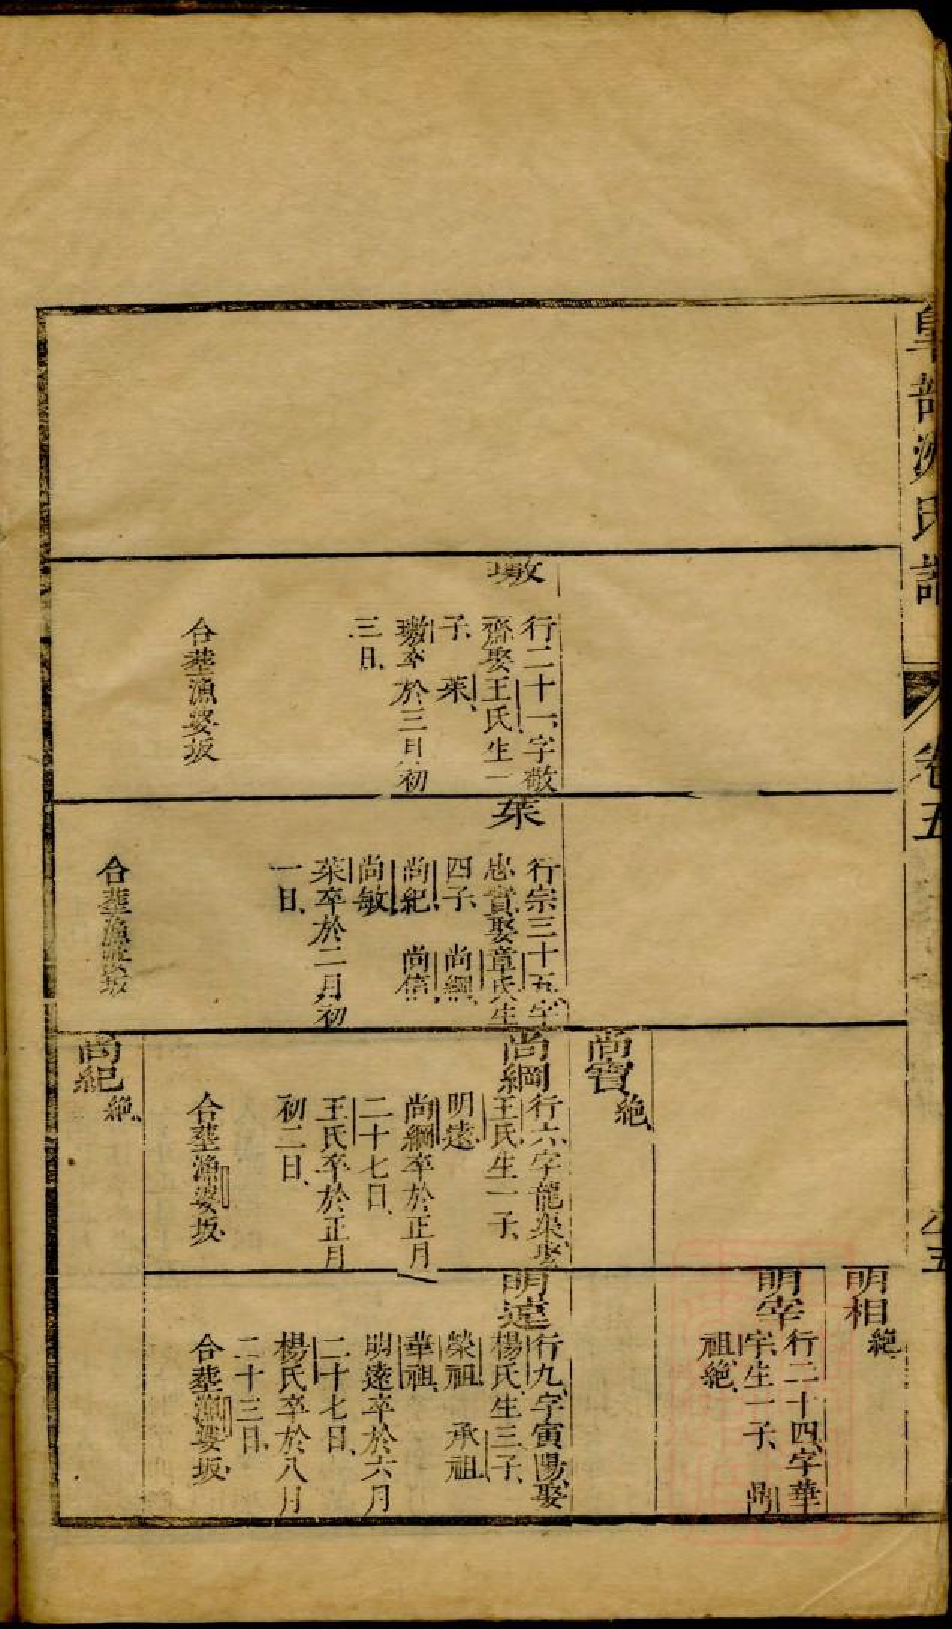 氏譜
卷五
璥
行二十一字敬
齋娶王氏生一
子 萊
璥卒於三月初
三日
合塟漁婆坂
萊
行宗三十五字
忠實娶章氏生
四子 尚綱
尚紀 尚信
尚敏
萊卒於二月初
一日
合塟漁婆坂
尚寶
絶
尚綱
行六字龍泉娶
王氏生一子
明遠
尚綱卒於正月
二十七日
王氏卒於正月
初二日
合塟漁婆坂
尚紀
絶
明相
絶
明宰
行二十四字華
宇生一子 鼎
祖絶
明遠
行九字寅陽娶
楊氏生三子
榮祖 承祖
華祖
明遠卒於六月
二十七日
楊氏卒於八月
二十三日
合塟漁婆坂